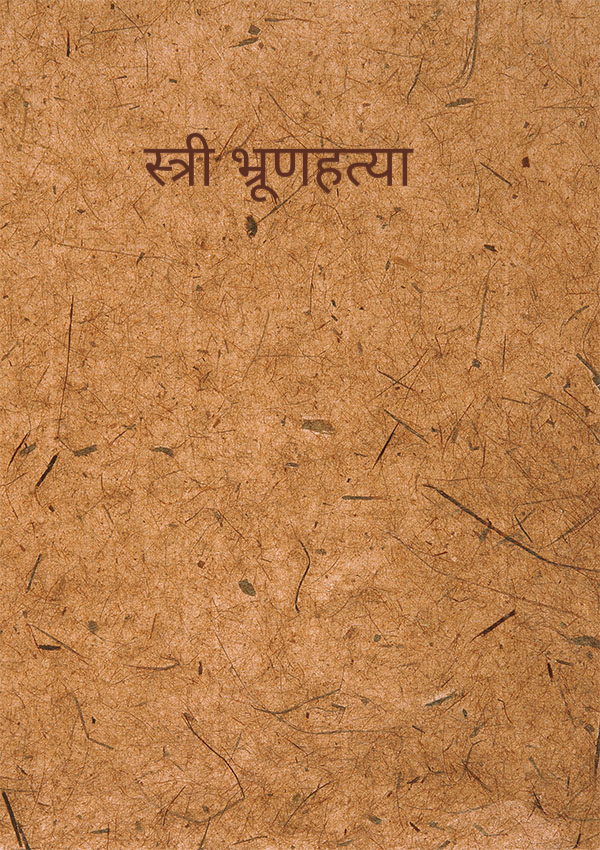 स्त्री भ्रूणहत्या